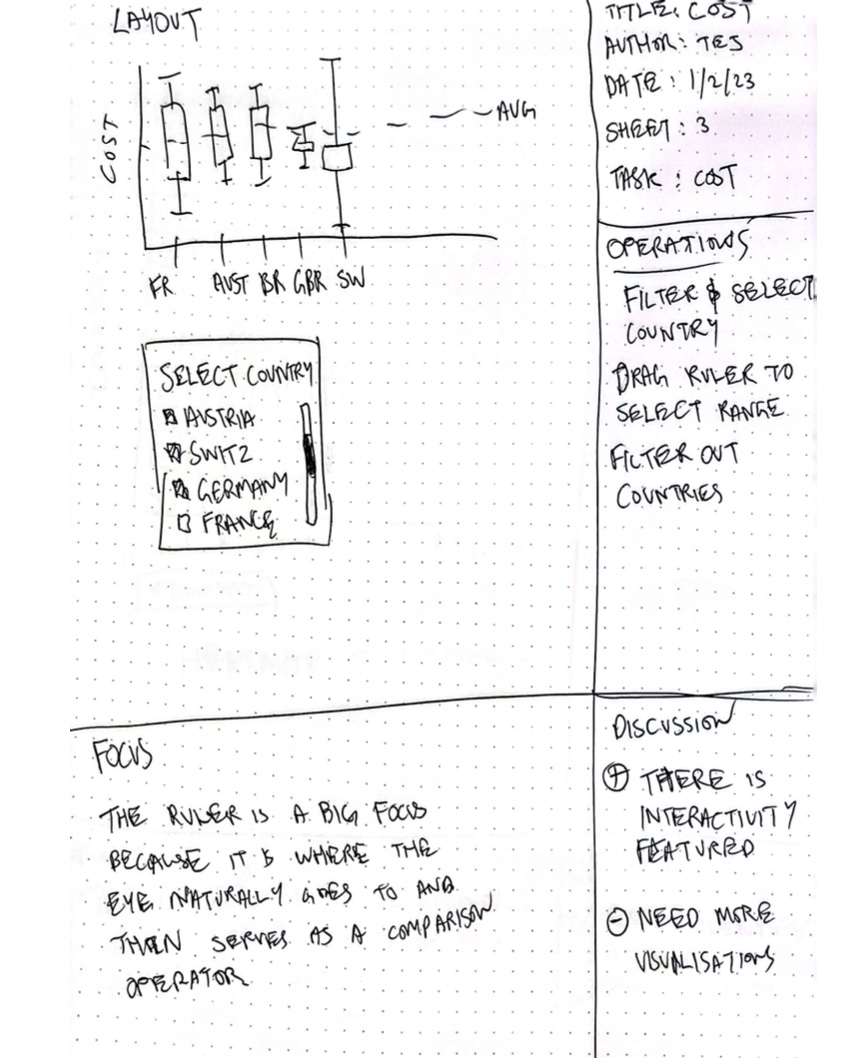 LAYOUT
COST
AVG
FR AUST BR GBR SW
SELECT COUNTRY
AUSTRIA
SWITZ
GERMANY
FRANCE
TITLE: COST
AUTHOR: TES
DATE: 1/2/23
SHEET: 3
TASK: COST
OPERATIONS
FILTER & SELECT
COUNTRY
DRAG RULER TO
SELECT RANGE
FILTER OUT
COUNTRIES
FOCUS
THE RULER IS A BIG FOCUS
BECAUSE IT IS WHERE THE
EYE NATURALLY GOES TO AND
THEN SERVES AS A COMPARISON
OPERATOR
DISCUSSION
+ THERE IS
INTERACTIVITY
FEATURED
- NEED MORE
VISUALISATIONS